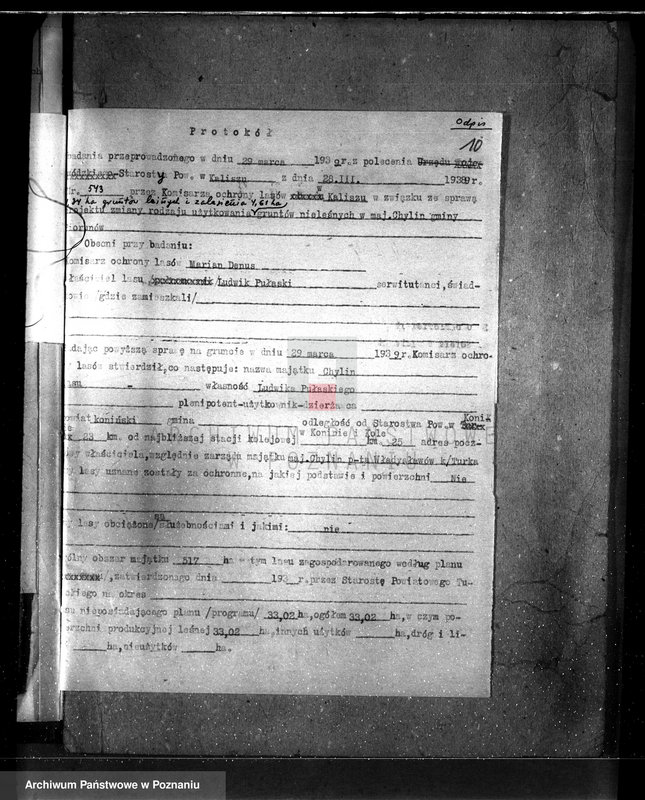 Odpis
10
Protokół
badania przeprowadzonego w dniu 29 marca 1939 r. z polecenia Urzędu
Starosty Pow. w Kaliszu z dnia 28.III. 1939 r.
543 przez Komisarza ochrony lasów w Kaliszu w związku ze sprawą
ha gruntów leśnych i zalesienia 4,61 ha
projektu zmiany rodzaju użytkowania gruntów nieleśnych w maj. Chylin gminy
Obecni przy badaniu:
komisarz ochrony lasów Marian Denus
właściciel lasu /pełnomocnik/ Ludwik Pułaski serwitutanci, świad-
kowie gdzie zamieszkali/
dając powyższą sprawę na gruncie w dniu 29 marca 1939 r. Komisarz ochro-
y lasów stwierdził, co następuje: nazwa majątku Chylin
asu - własność Ludwika Pułaskiego
plenipotent-użytkownik-dzierżawca
powiat koniński gmina odległość od Starostwa Pow. w Koni-
23 km. od najbliższej stacji kolejowej w Koninie i Kole km. 25 adres pocz-
wy właściciela, względnie zarządu majątku maj. Chylin p-ta Władysławów k/Turka
y lasy uznane zostały za ochronne, na jakiej podstawie i powierzchni Nie
y lasy obciążone są służebnościami i jakimi: nie
gólny obszar majątku 517 ha w tym lasu zagospodarowanego według planu
, zatwierdzonego dnia 193 r. przez Starostę Powiatowego Tu-
ckiego na okres
su nieposiadającego planu /programu/ 33,02 ha, ogółem 33,02 ha, w czym po-
erzchni produkcyjnej leśnej 33,02 ha, innych użytków ha, dróg i li-
ha, nieużytków ha.
ARCHIWUM PAŃSTWOWE
W POZNANIU
Archiwum Państwowe w Poznaniu